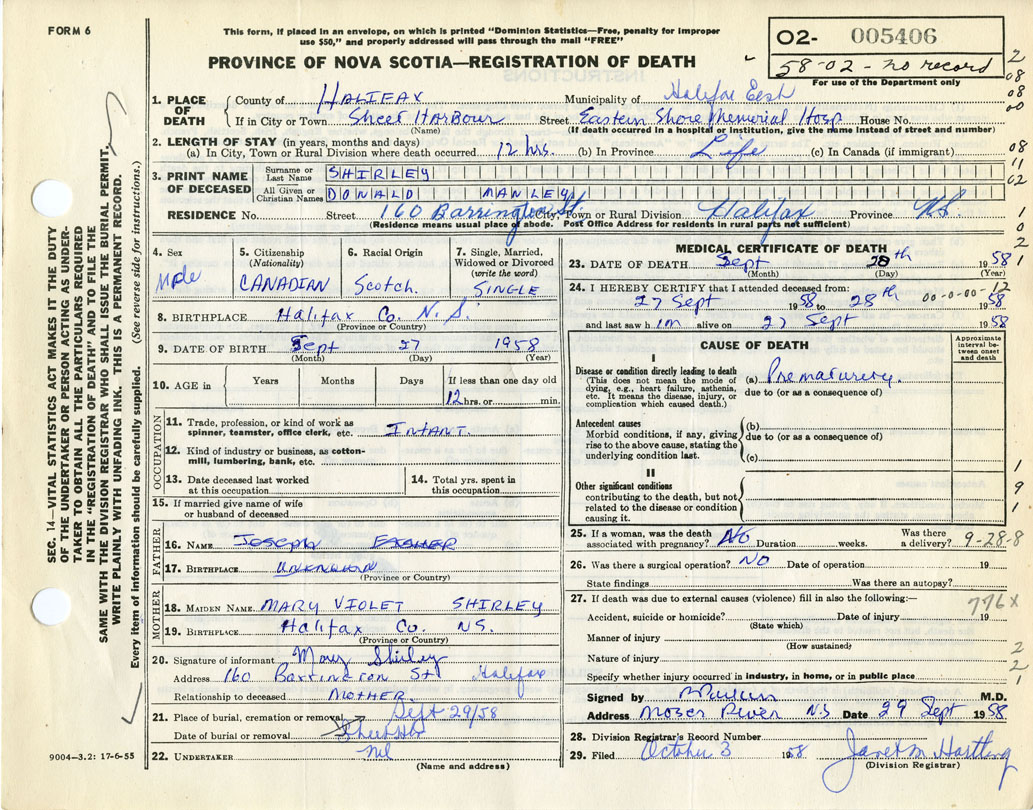 FORM 6
This form, if placed in an envelope, on which is printed "Dominion Statistics—Free, penalty for improper
use $50," and properly addressed will pass through the mail "FREE"
O2- 005406
58-02 - no record
For use of the Department only
PROVINCE OF NOVA SCOTIA—REGISTRATION OF DEATH
SEC. 14—VITAL STATISTICS ACT MAKES IT THE DUTY
OF THE UNDERTAKER OR PERSON ACTING AS UNDER-
TAKER TO OBTAIN ALL THE PARTICULARS REQUIRED
IN THE "REGISTRATION OF DEATH" AND TO FILE THE
SAME WITH THE DIVISION REGISTRAR WHO SHALL ISSUE THE BURIAL PERMIT.
WRITE PLAINLY WITH UNFADING INK. THIS IS A PERMANENT RECORD.
Every item of information should be carefully supplied. (See reverse side for instructions.)
1. PLACE OF DEATH
County of HALIFAX Municipality of Halifax
If in City or Town Sheet Harbour Street Eastern Shore Memorial Hosp House No.
(Name) (If death occurred in a hospital or institution, give the name instead of street and number)
2. LENGTH OF STAY (in years, months and days)
(a) In City, Town or Rural Division where death occurred 12 hrs. (b) In Province Life (c) In Canada (if immigrant)
3. PRINT NAME OF DECEASED
Surname or Last Name SHIRLEY
All Given or Christian Names DONALD MANLEY
RESIDENCE No. Street 160 Barrington St. City, Town or Rural Division Halifax Province N.S.
(Residence means usual place of abode. Post Office Address for residents in rural parts not sufficient)
4. Sex
Male
5. Citizenship
(Nationality)
CANADIAN
6. Racial Origin
Scotch.
7. Single, Married,
Widowed or Divorced
(write the word)
SINGLE
8. BIRTHPLACE Halifax Co. N.S.
(Province or Country)
9. DATE OF BIRTH Sept 27 1958
(Month) (Day) (Year)
10. AGE in Years Months Days If less than one day old
12 hrs. or min.
OCCUPATION
11. Trade, profession, or kind of work as
spinner, teamster, office clerk, etc. INFANT.
12. Kind of industry or business, as cotton-
mill, lumbering, bank, etc.
13. Date deceased last worked
at this occupation
14. Total yrs. spent in
this occupation
15. If married give name of wife
or husband of deceased
FATHER
16. NAME JOSEPH
17. BIRTHPLACE UNKNOWN
(Province or Country)
MOTHER
18. MAIDEN NAME MARY VIOLET SHIRLEY
19. BIRTHPLACE Halifax Co. NS.
(Province or Country)
20. Signature of informant Mary Shirley
Address 160 Barrington St Halifax
Relationship to deceased MOTHER
21. Place of burial, cremation or removal Sept 29/58
Date of burial or removal
22. UNDERTAKER nil
(Name and address)
9004—3.2: 17-6-55
MEDICAL CERTIFICATE OF DEATH
23. DATE OF DEATH Sept 28th 1958
(Month) (Day) (Year)
24. I HEREBY CERTIFY that I attended deceased from: 00-0-00-12
27 Sept 1958 to 28th 1958
and last saw him alive on 27 Sept 1958
CAUSE OF DEATH
Approximate interval between onset and death
I
Disease or condition directly leading to death
(This does not mean the mode of
dying, e.g., heart failure, asthenia,
etc. It means the disease, injury, or
complication which caused death.)
(a) Prematurity.
due to (or as a consequence of)
Antecedent causes
Morbid conditions, if any, giving
rise to the above cause, stating the
underlying condition last.
(b)
due to (or as a consequence of)
(c)
II
Other significant conditions
contributing to the death, but not
related to the disease or condition
causing it.
25. If a woman, was the death
associated with pregnancy? No Duration weeks. Was there
a delivery? 9-28-8
26. Was there a surgical operation? NO Date of operation 19
State findings Was there an autopsy?
27. If death was due to external causes (violence) fill in also the following:— 776X
Accident, suicide or homicide? Date of injury 19
(State which)
Manner of injury
(How sustained)
Nature of injury
Specify whether injury occurred in industry, in home, or in public place
Signed by M.D.
Address Moser River NS Date 29 Sept 1958
28. Division Registrar's Record Number
29. Filed October 3 1958 Janet M. Hartling
(Division Registrar)
2
08
08
00
08
11
02
1
0
2
1
1
9
1
2
2
1